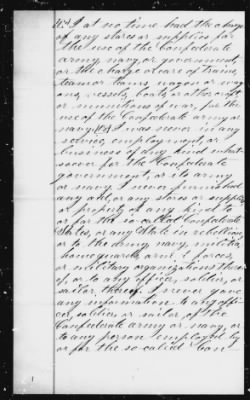 I at no time had the charge
of any stores or supplies for
the use of the Confederate
army navy or government,
or the charge or care of trains,
teams wagons or
vessels, boats, or other craft
or munitions of war, for the
use of the Confederate army or
navy. I was never in any
service, employment or
business of any kind what-
soever for the Confederate
government, or its army
or navy I never furnished
any aid, or any stores or supplies
or property of any kind to
or for the so called Confederate
States, or any State in rebellion,
or to the army, navy, militia
home guards, forces,
or military organizations there
of, or to any officer, soldier, or
sailor, thereof. I never gave
any information to any offi-
cer, soldier or sailor of the
Confederate army or navy, or
to any person employed by
or for the so called Con